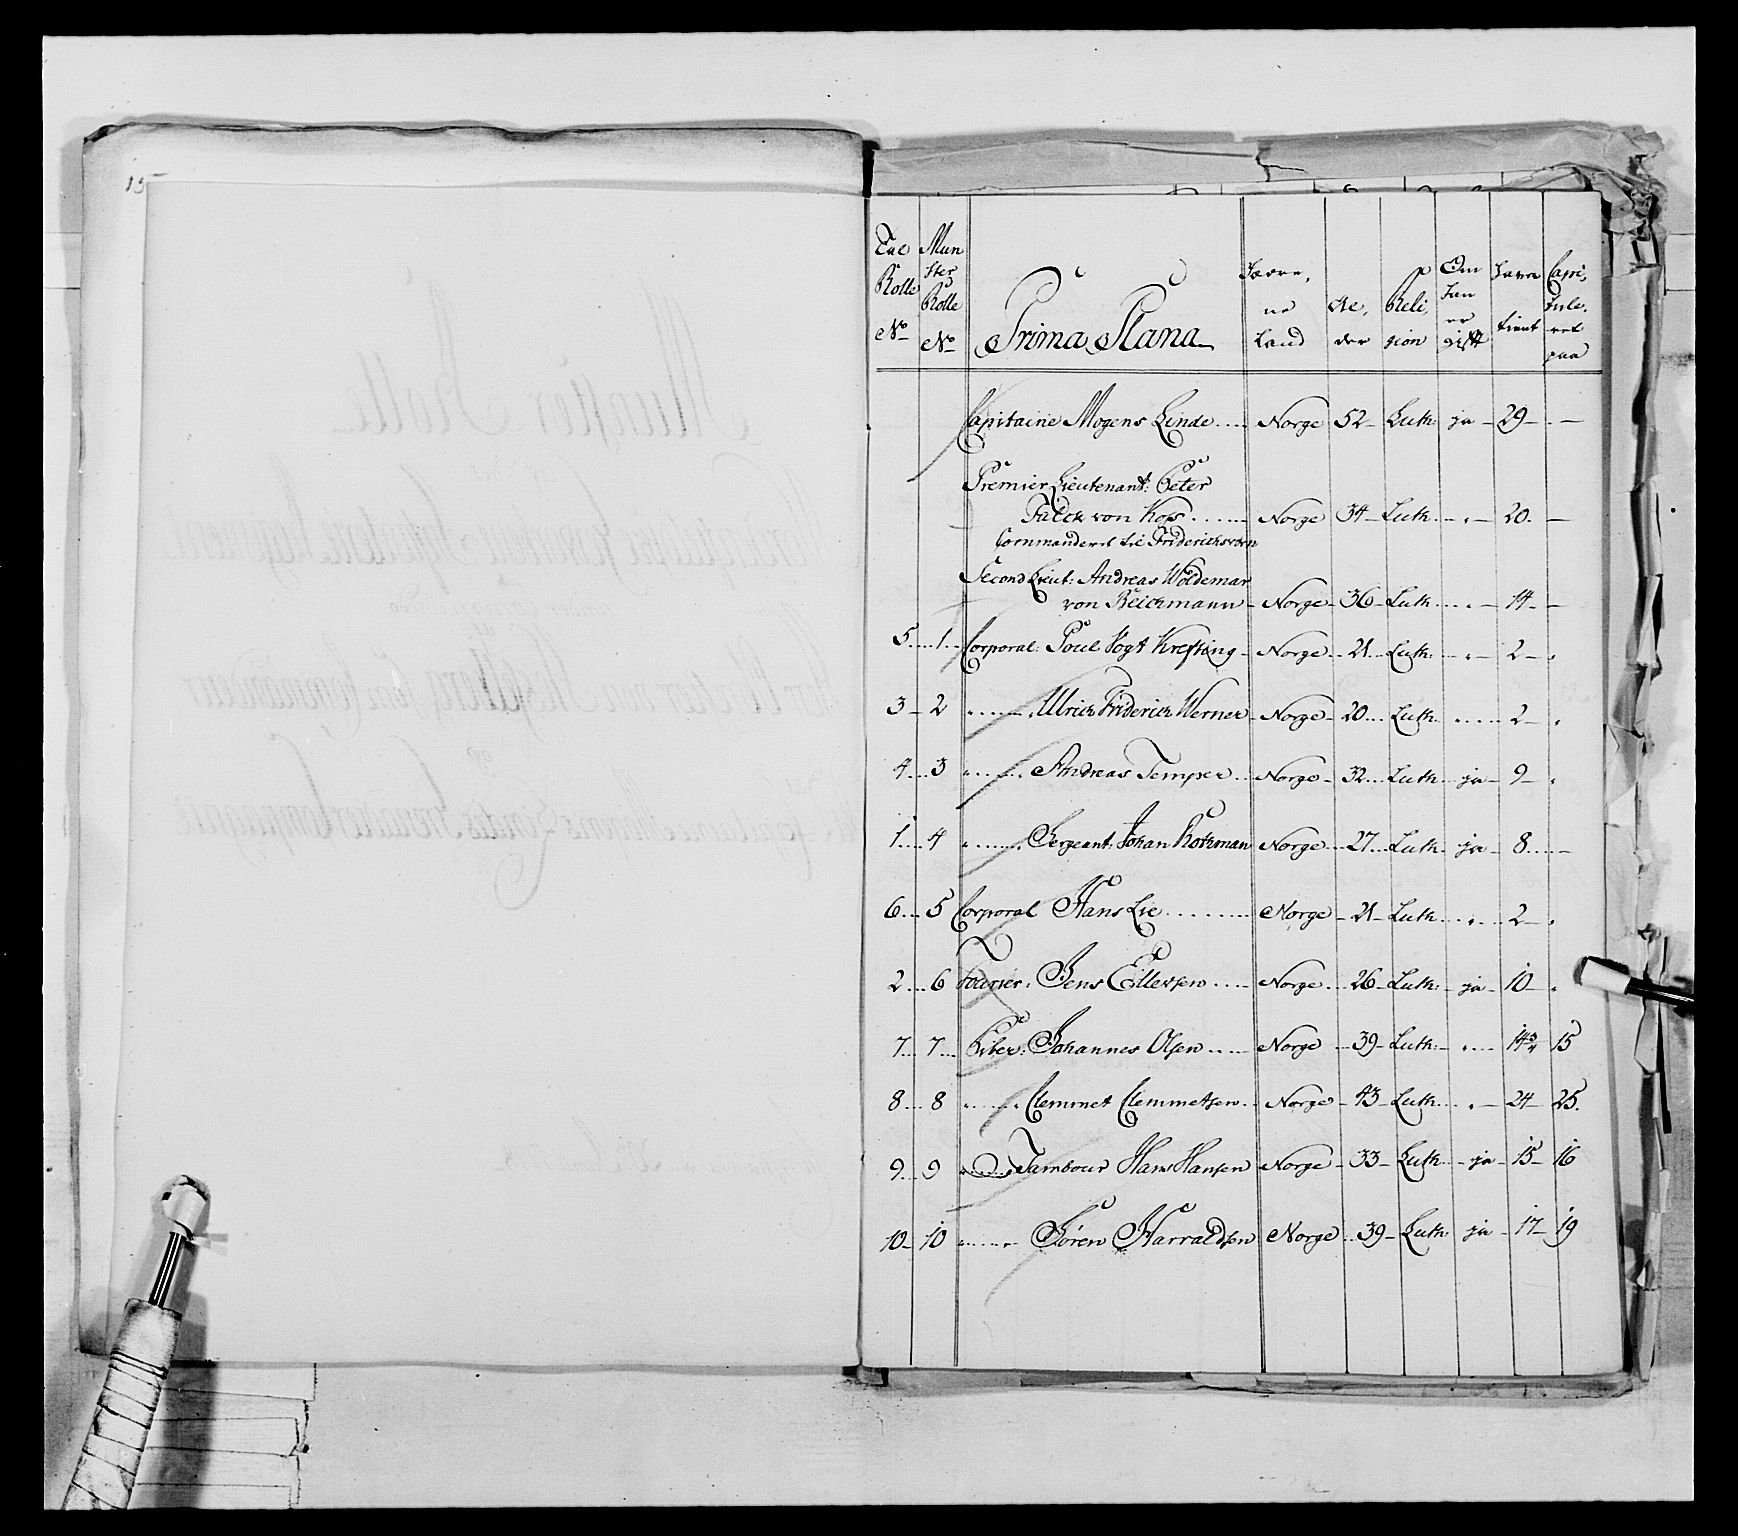 15
Tal Rolle No
Mun ster Rolle No
Prima Plana
Fødde, ne Land
Al, der
Reli, gion
Om han er gift
havn tient
Capi, tule, ret paa
Capitaine Mogens Linde .... Norge 52 Luth: ja 29 —
Premier Lieutenant: Peter
Falck von Kos ...... Norge 34 Luth. " 20. —
Commanderet til Friderichsværn
Second Lieut: Andreas Woldemar
von Beichmann Norge 36 Luth .. " 14 —
5 .... 1 .. Corporal: Poul Vogt Krefting Norge .. 21 .. Luth: " 2 "
3 2 ........ Ulrich Friderich Werner Norge 20 ... Luth ...... 2 "
4 ... 3 " ...... Andreas Temper .. Norge 32 ... Luth. ja 9 "
1 .... 4 " ....... Sergeant: Johan Rothman Norge ... 27 ... Luth. ja 8 ....
6 ... 5 Corporal Hans Lie ......... Norge 21 Luth .. " ... 2 "
2 ... 6 Fourier: Jens Eillersen .... Norge ... 26 Luth: ja 10 "
7 ... 7 ... Piber: Johannes Olsen ..... Norge ... 39 Luth: " ... 14¾ 15
8 ... 8 " ....... " Clemmet Clemmetsen .. Norge 43 Luth ... " 24 25.
9 ... 9 ...... Tambour Hans Hansen Norge 33 Luth .. ja 15 16
10 10 " ....... Sören Harraldsen Norge .. 39 Luth: ja 17 19